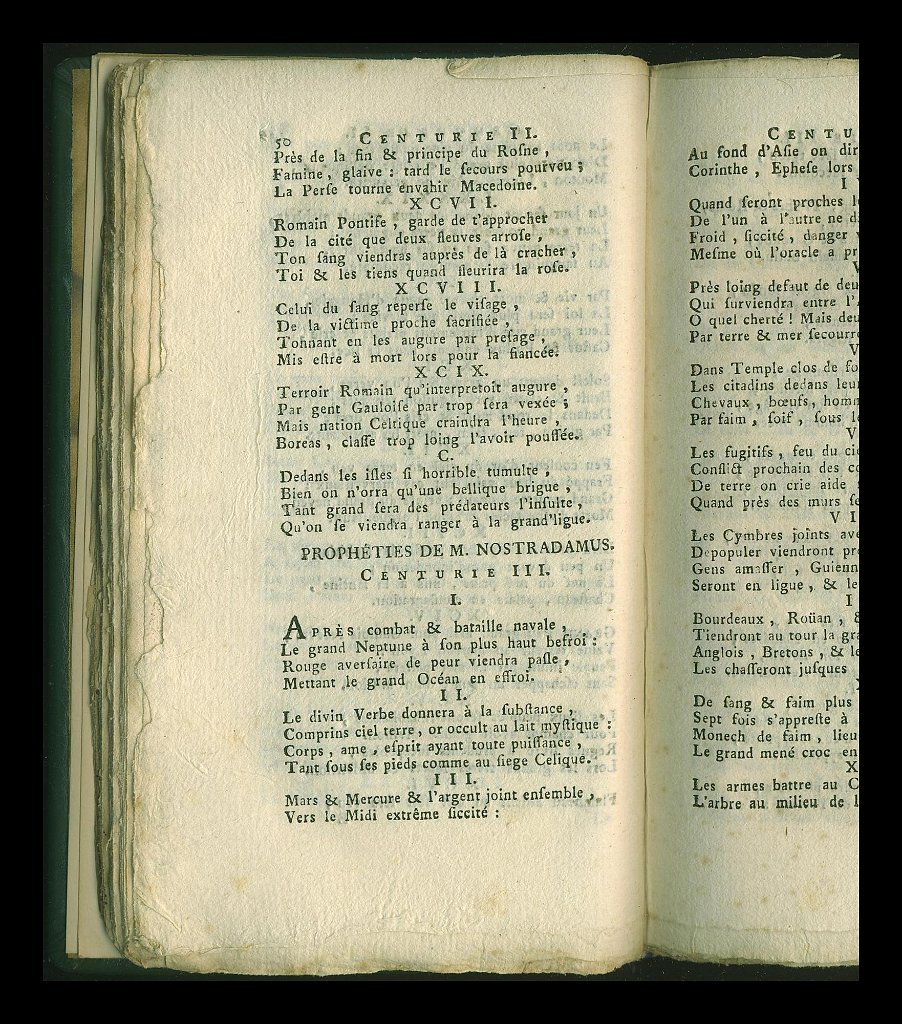 50 CENTURIE II.
Près de la fin & principe du Roſne ,
Famine , glaive : tard le ſecours pourveu ;
La Perſe tourne envahir Macedoine.
XCVII.
Romain Pontife , garde de t'approcher
De la cité que deux fleuves arroſe ,
Ton ſang viendras auprès de là cracher ,
Toi & les tiens quand fleurira la roſe.
XCVIII.
Celui du ſang reperſe le viſage ,
De la victime proche ſacrifiée ,
Tonnant en les augure par preſage ,
Mis eſtre à mort lors pour la fiancée.
XCIX.
Terroir Romain qu'interpretoit augure ,
Par gent Gauloiſe par trop ſera vexée ;
Mais nation Celtique craindra l'heure ,
Boreas , claſſe trop loing l'avoir pouſſée.
C.
Dedans les iſles ſi horrible tumulte ,
Bien on n'orra qu'une bellique brigue ,
Tant grand ſera des prédateurs l'inſulte ,
Qu'on ſe viendra ranger à la grand'ligue.
PROPHÉTIES DE M. NOSTRADAMUS.
CENTURIE III.
I.
APRÈS combat & bataille navale ,
Le grand Neptune à ſon plus haut befroi :
Rouge averſaire de peur viendra paſle ,
Mettant le grand Océan en effroi.
II.
Le divin Verbe donnera à la ſubſtance ,
Comprins ciel terre , or occult au lait myſtique :
Corps , ame , eſprit ayant toute puiſſance ,
Tant ſous ſes pieds comme au ſiege Celique.
III.
Mars & Mercure & l'argent joint enſemble ,
Vers le Midi extrême ſiccité :
CENTU
Au fond d'Aſie on dir
Corinthe , Epheſe lors
I
Quand ſeront proches l
De l'un à l'autre ne d
Froid , ſiccité , danger
Meſme où l'oracle a pr
V
Près loing defaut de deu
Qui ſurviendra entre l'
O quel cherté ! Mais deu
Par terre & mer ſecourr
V
Dans Temple clos de fo
Les citadins dedans leu
Chevaux , bœufs , homm
Par faim , ſoif , ſous l
V
Les fugitifs , feu du ci
Conflict prochain des c
De terre on crie aide
Quand près des murs ſe
VI
Les Cymbres joints ave
Depopuler viendront pr
Gens amaſſer , Guienn
Seront en ligue , & le
I
Bourdeaux , Roüan , &
Tiendront au tour la gra
Anglois , Bretons , & le
Les chaſſeront juſques
X
De ſang & faim plus
Sept fois s'appreſte à
Monech de faim , lieu
Le grand mené croc en
X
Les armes battre au C
L'arbre au milieu de l